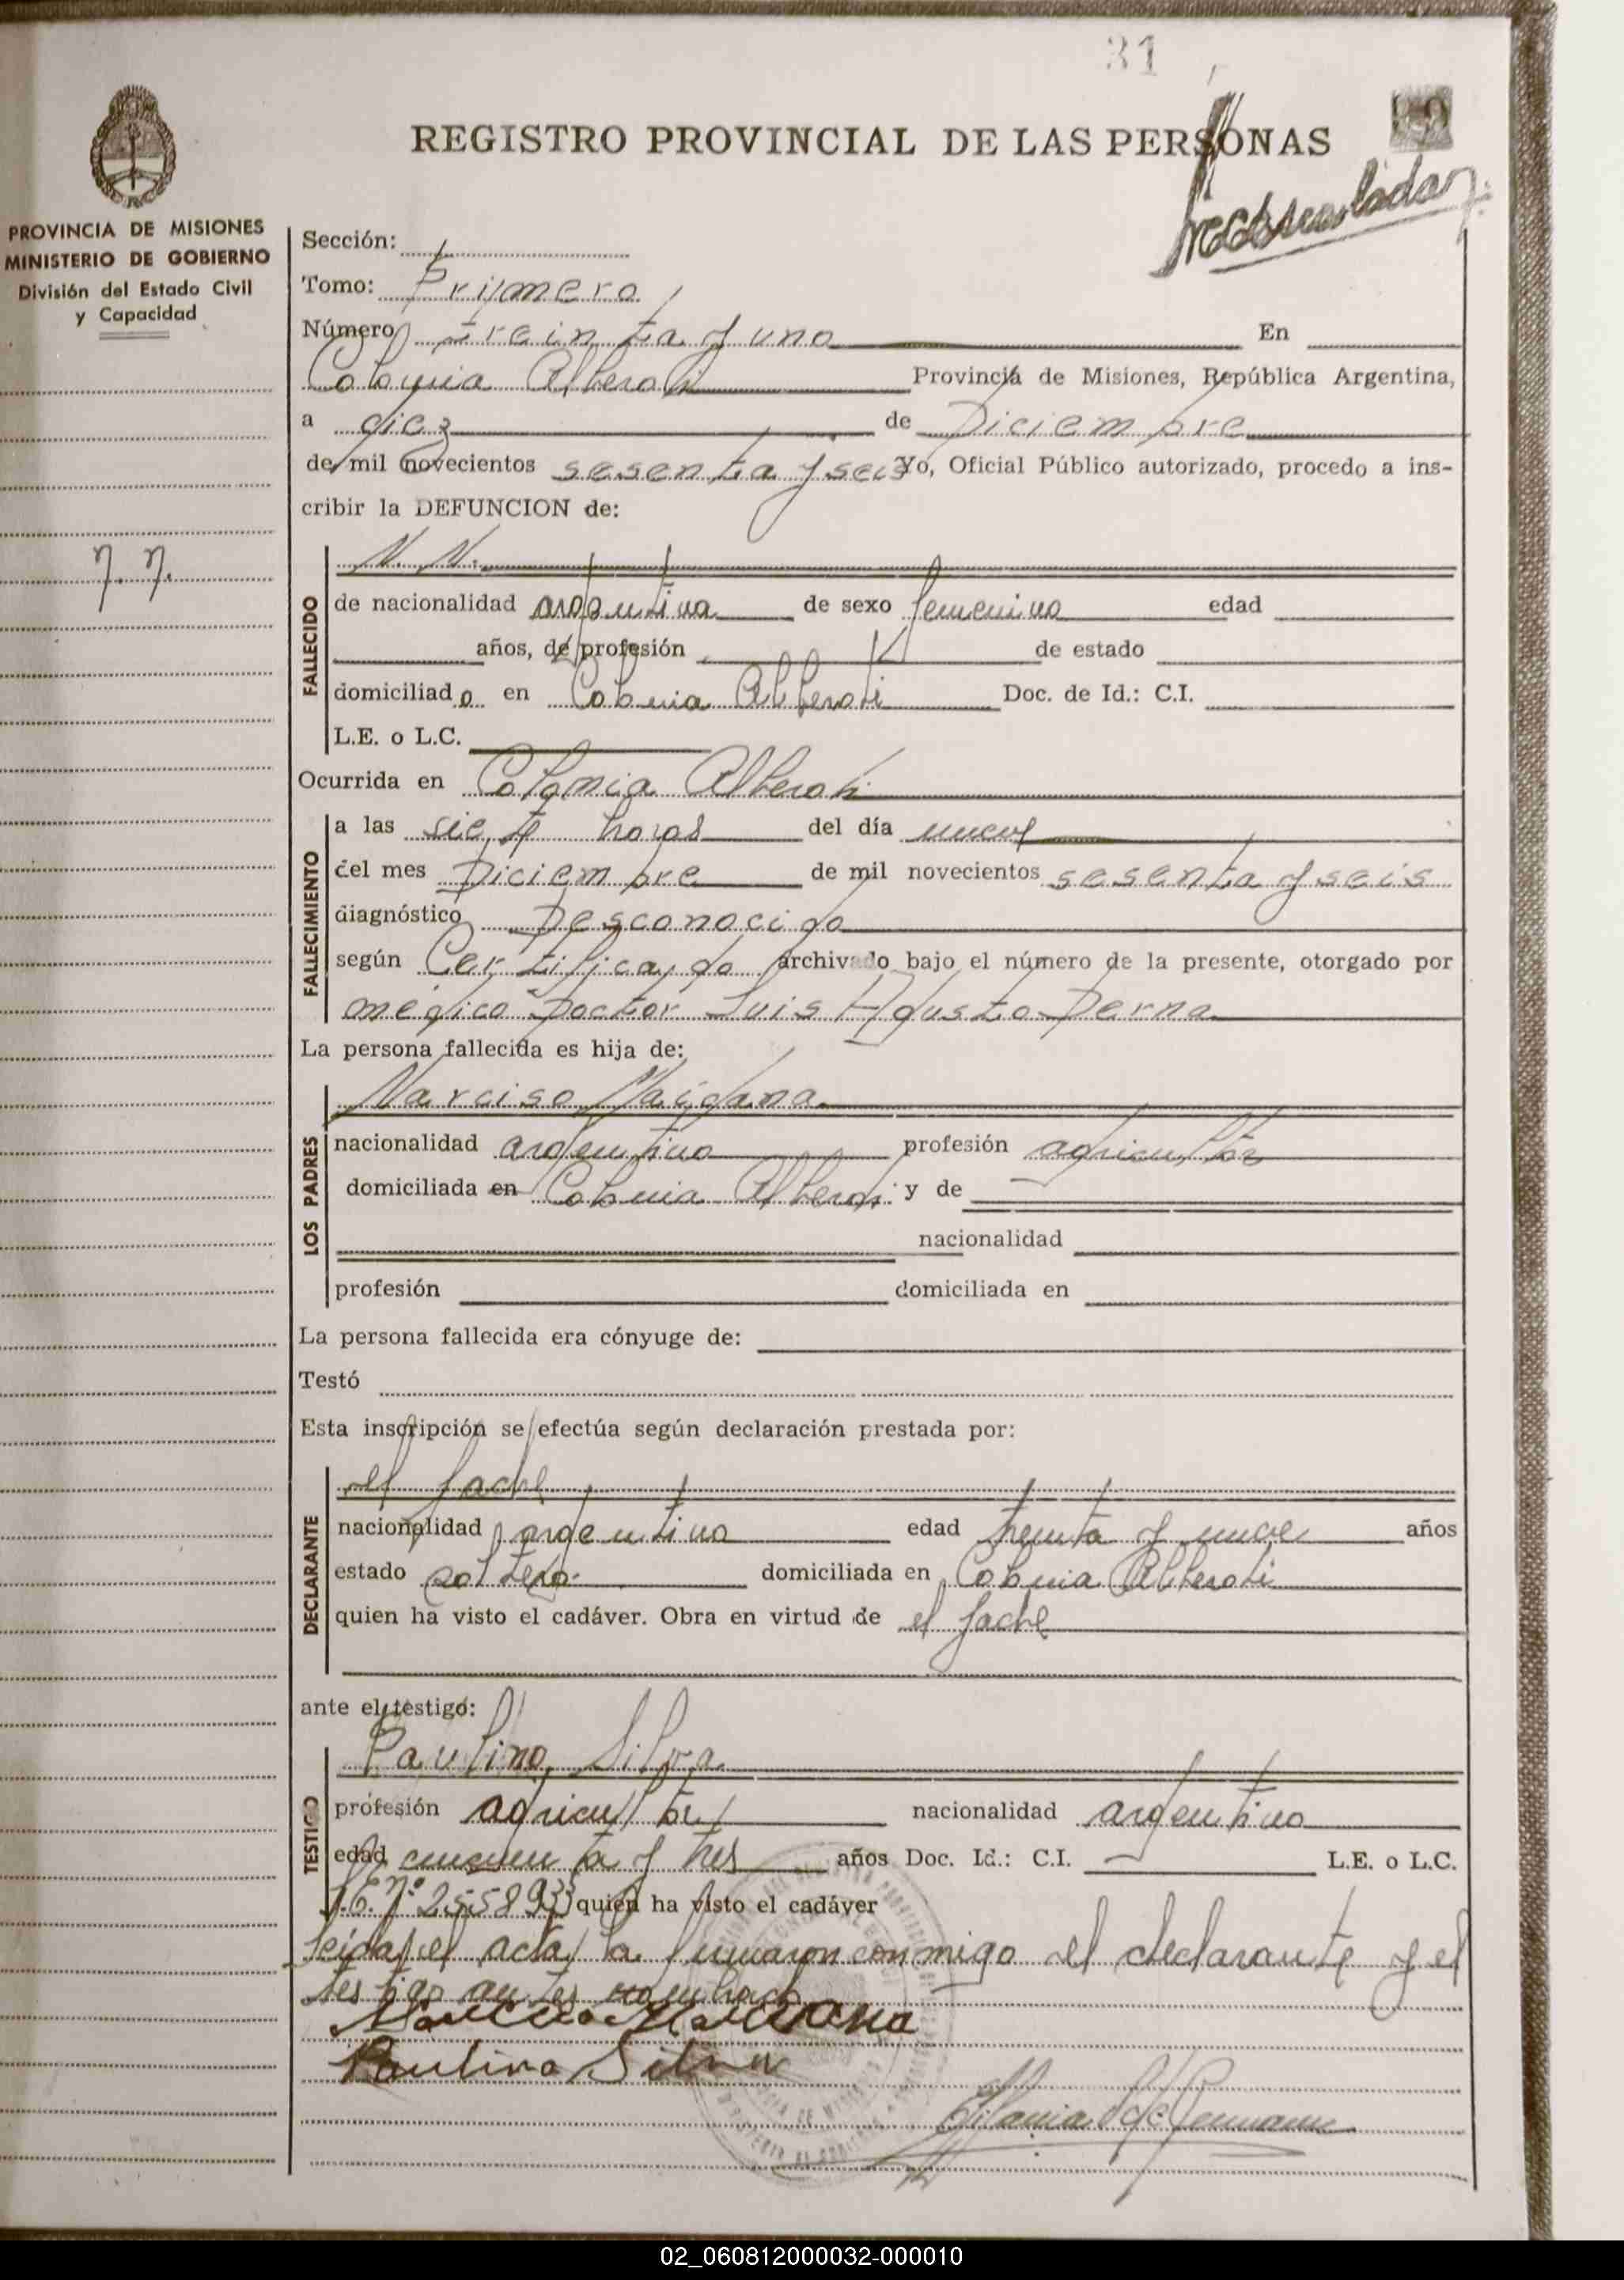 31
REGISTRO PROVINCIAL DE LAS PERSONAS
PROVINCIA DE MISIONES
MINISTERIO DE GOBIERNO
División del Estado Civil
y Capacidad
Sección:
Tomo: Primero
Número treinta y uno En
Colonia Alberdi Provincia de Misiones, República Argentina,
a diez de Diciembre
de mil novecientos sesenta y seis Yo, Oficial Público autorizado, procedo a ins-
cribir la DEFUNCION de:
N. N.
N. N.
FALLECIDO
de nacionalidad argentina de sexo femenino edad
años, de profesión de estado
domiciliado en Colonia Alberdi Doc. de Id.: C.I.
L.E. o L.C.
Ocurrida en Colonia Alberdi
FALLECIMIENTO
a las siete horas del día nueve
del mes Diciembre de mil novecientos sesenta y seis
diagnóstico Desconocido
según Certificado archivado bajo el número de la presente, otorgado por
médico Doctor Luis Agusto Derna
La persona fallecida es hija de:
LOS PADRES
Narciso Maidana
nacionalidad argentino profesión agricultor
domiciliada en Colonia Alberdi y de
nacionalidad
profesión domiciliada en
La persona fallecida era cónyuge de:
Testó
Esta inscripción se efectúa según declaración prestada por:
DECLARANTE
el padre
nacionalidad argentino edad treinta y nueve años
estado soltero. domiciliada en Colonia Alberdi
quien ha visto el cadáver. Obra en virtud de el padre
ante el testigo:
TESTIGO
Paulino Silva
profesión agricultor nacionalidad argentino
edad cincuenta y tres años Doc. Id.: C.I. L.E. o L.C.
L.E. Nº 2558933 quien ha visto el cadáver
Leida el acta la firmaron conmigo el declarante y el
testigo antes nombrado
Narciso Maidana
Paulino Silva
02_060812000032-000010